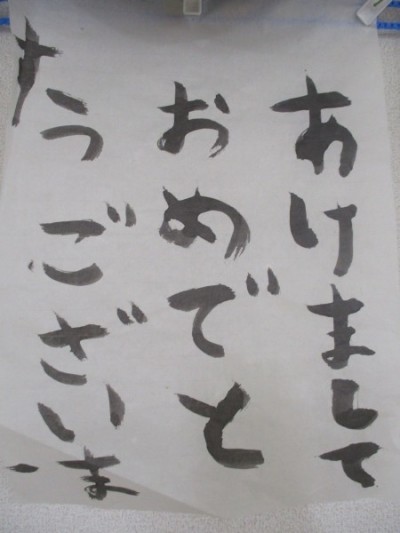 あけまして
おめでと
うございま
す.